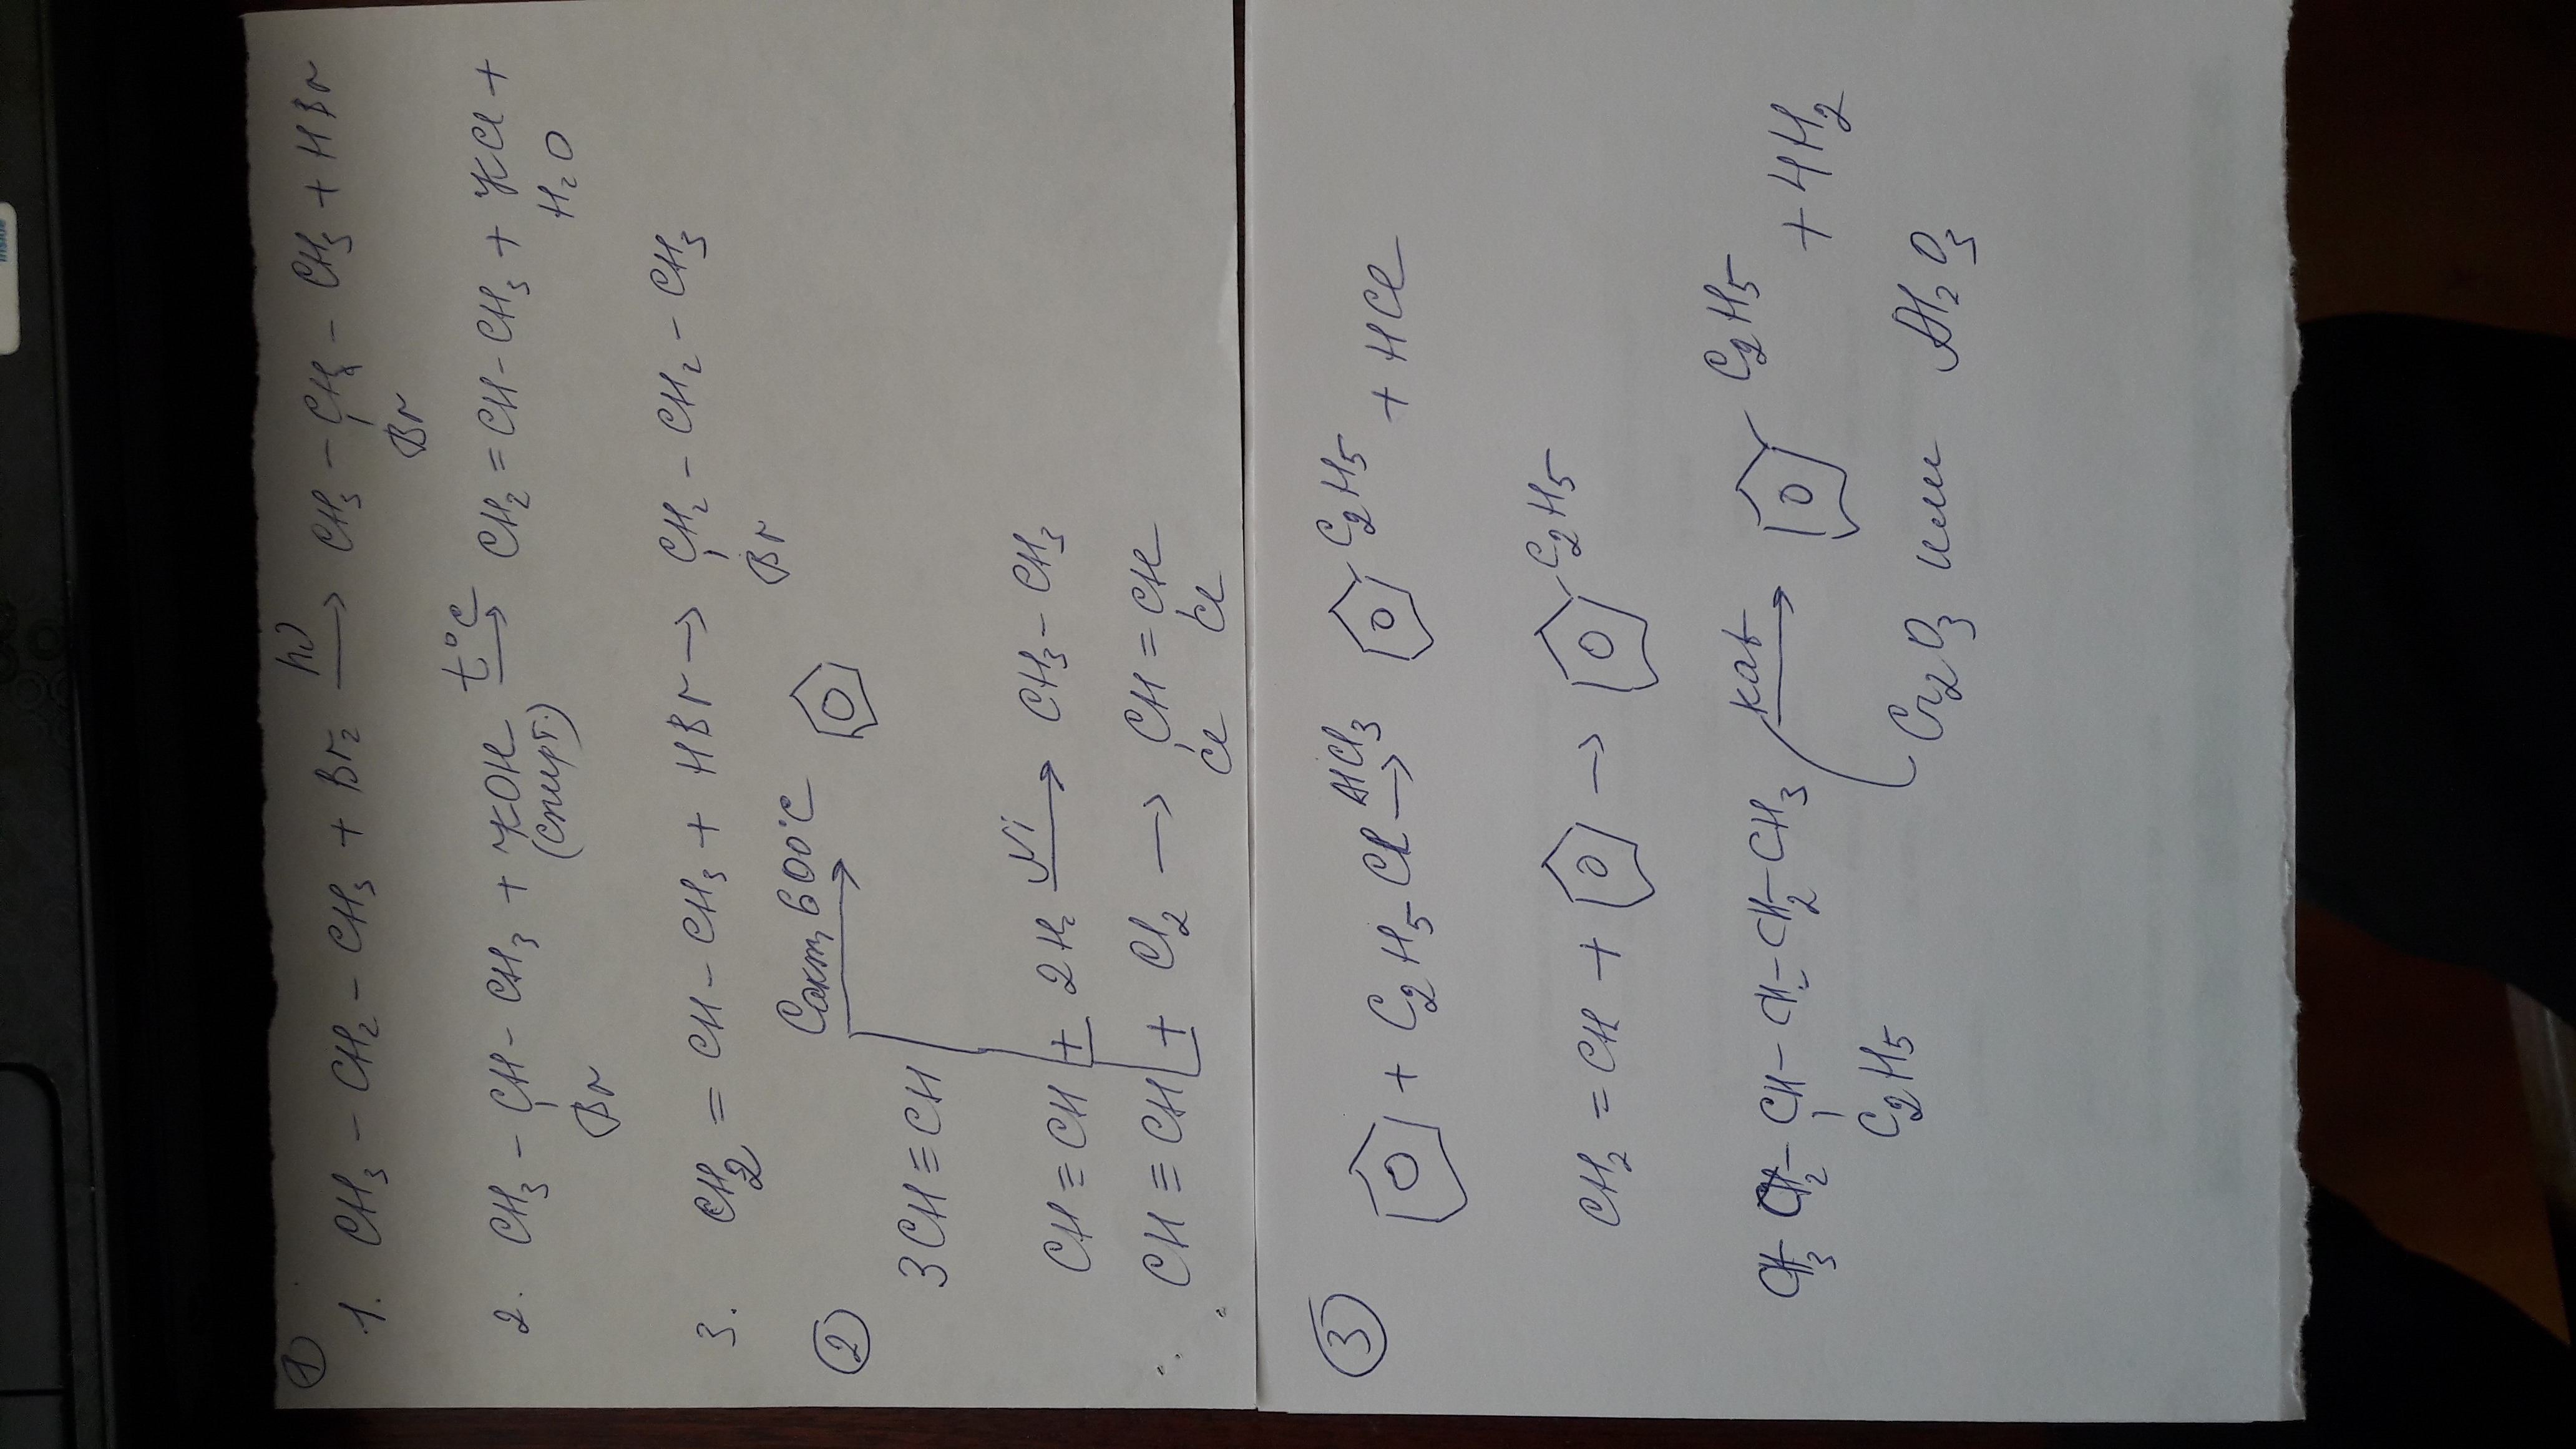 ①
1. CH3 - CH2 - CH3 + Br2 hν → CH3 - CH - CH3 + HBr
Br
2. CH3 - CH - CH3 + KOH t°C → CH2 = CH - CH3 + KCl +
Br (спирт.) H2O
3. CH2 = CH - CH3 + HBr → CH2 - CH2 - CH3
Br
②
3CH ≡ CH Cакт, 600°C →
CH ≡ CH + 2H2 Ni → CH3 - CH3
CH ≡ CH + Cl2 → CH = CH
Cl Cl
③
+ C2H5Cl AlCl3 → C2H5 + HCl
CH2 = CH + → C2H5
CH3 CH2 - CH - CH2 - CH2 - CH3 kat → C2H5 + 4H2
C2H5
Cr2O3 или Al2O3